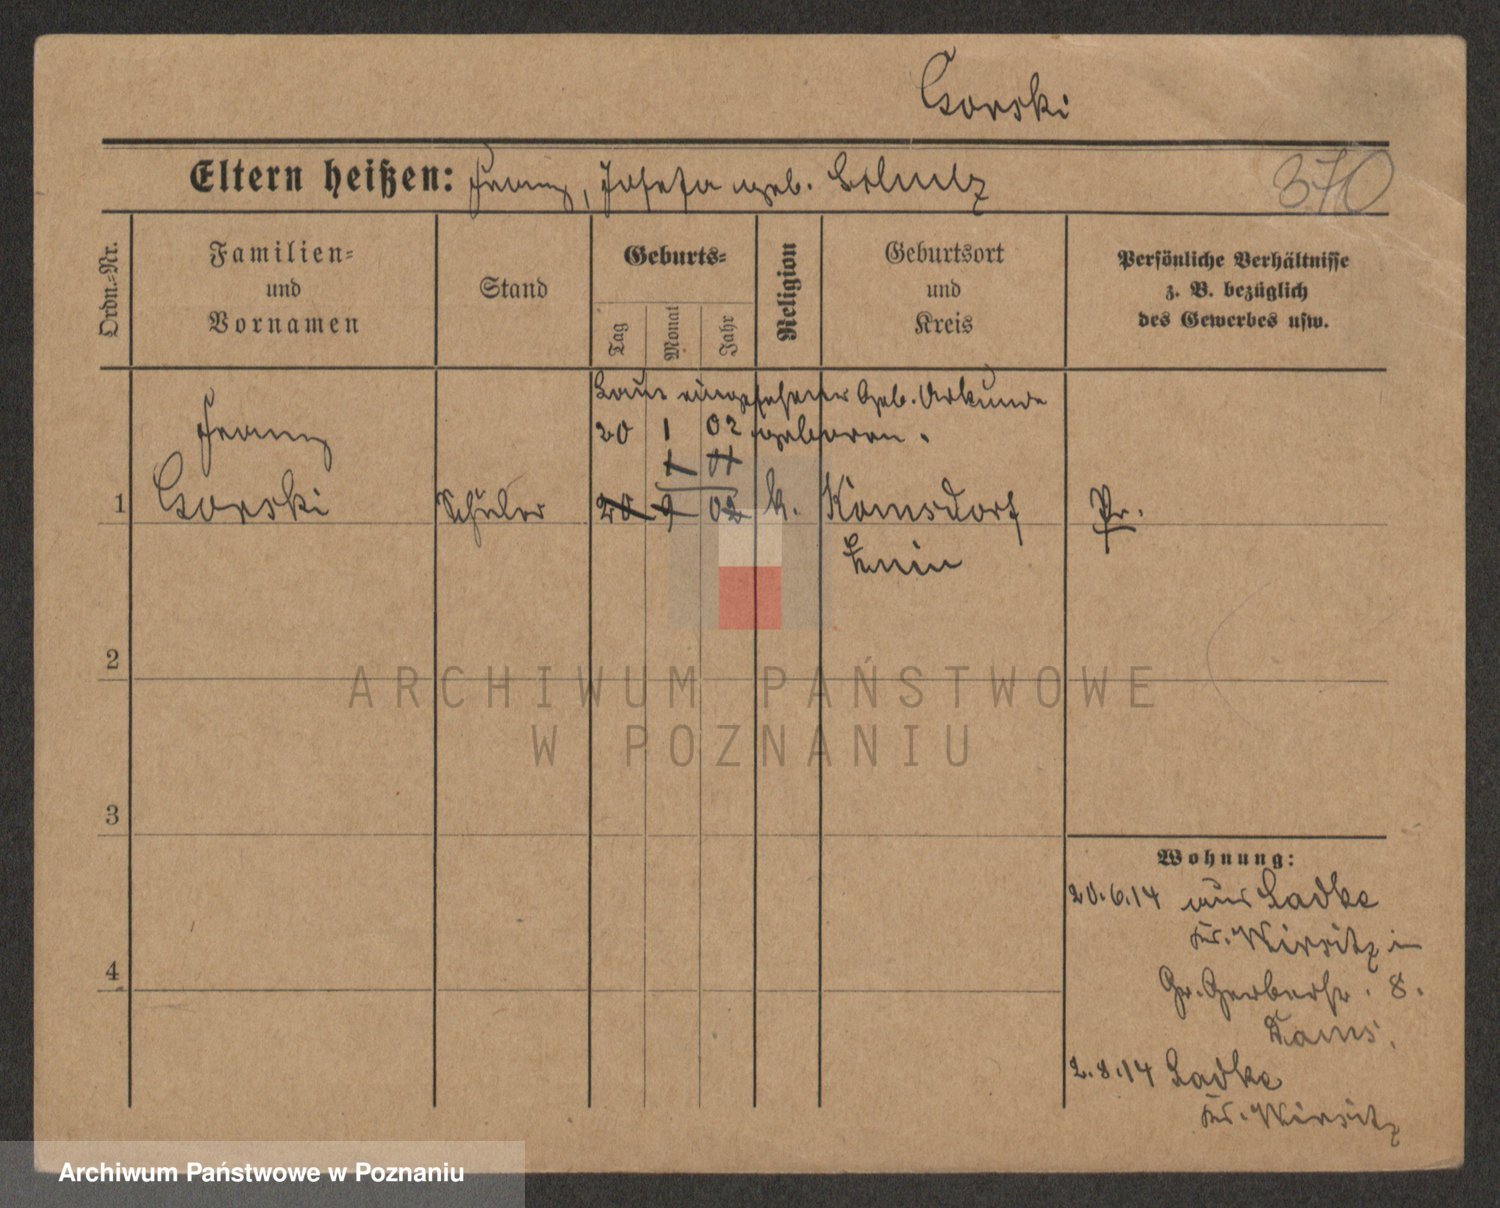 Gorski
Eltern heißen: Franz, Josefa geb.
370
Ordn.-Nr.
Familien-
und
Vornamen
Stand
Geburts-
Tag
Monat
Jahr
Religion
Geburtsort
und
Kreis
Persönliche Verhältnisse
z. B. bezüglich
des Gewerbes usw.
Laut eingesehener Geb. Urkunde
20 1 02 geboren.
Franz
1 Gorski Schüler 20 9 02 k. Komsdorf Pr.
Znin
2
3
4
Wohnung:
20.6.14 aus Sadke
Kr. Wirsitz in
Gr. Gerberstr. 8.
2.8.14 Sadke
Kr. Wirsitz
ARCHIWUM PAŃSTWOWE
W POZNANIU
Archiwum Państwowe w Poznaniu